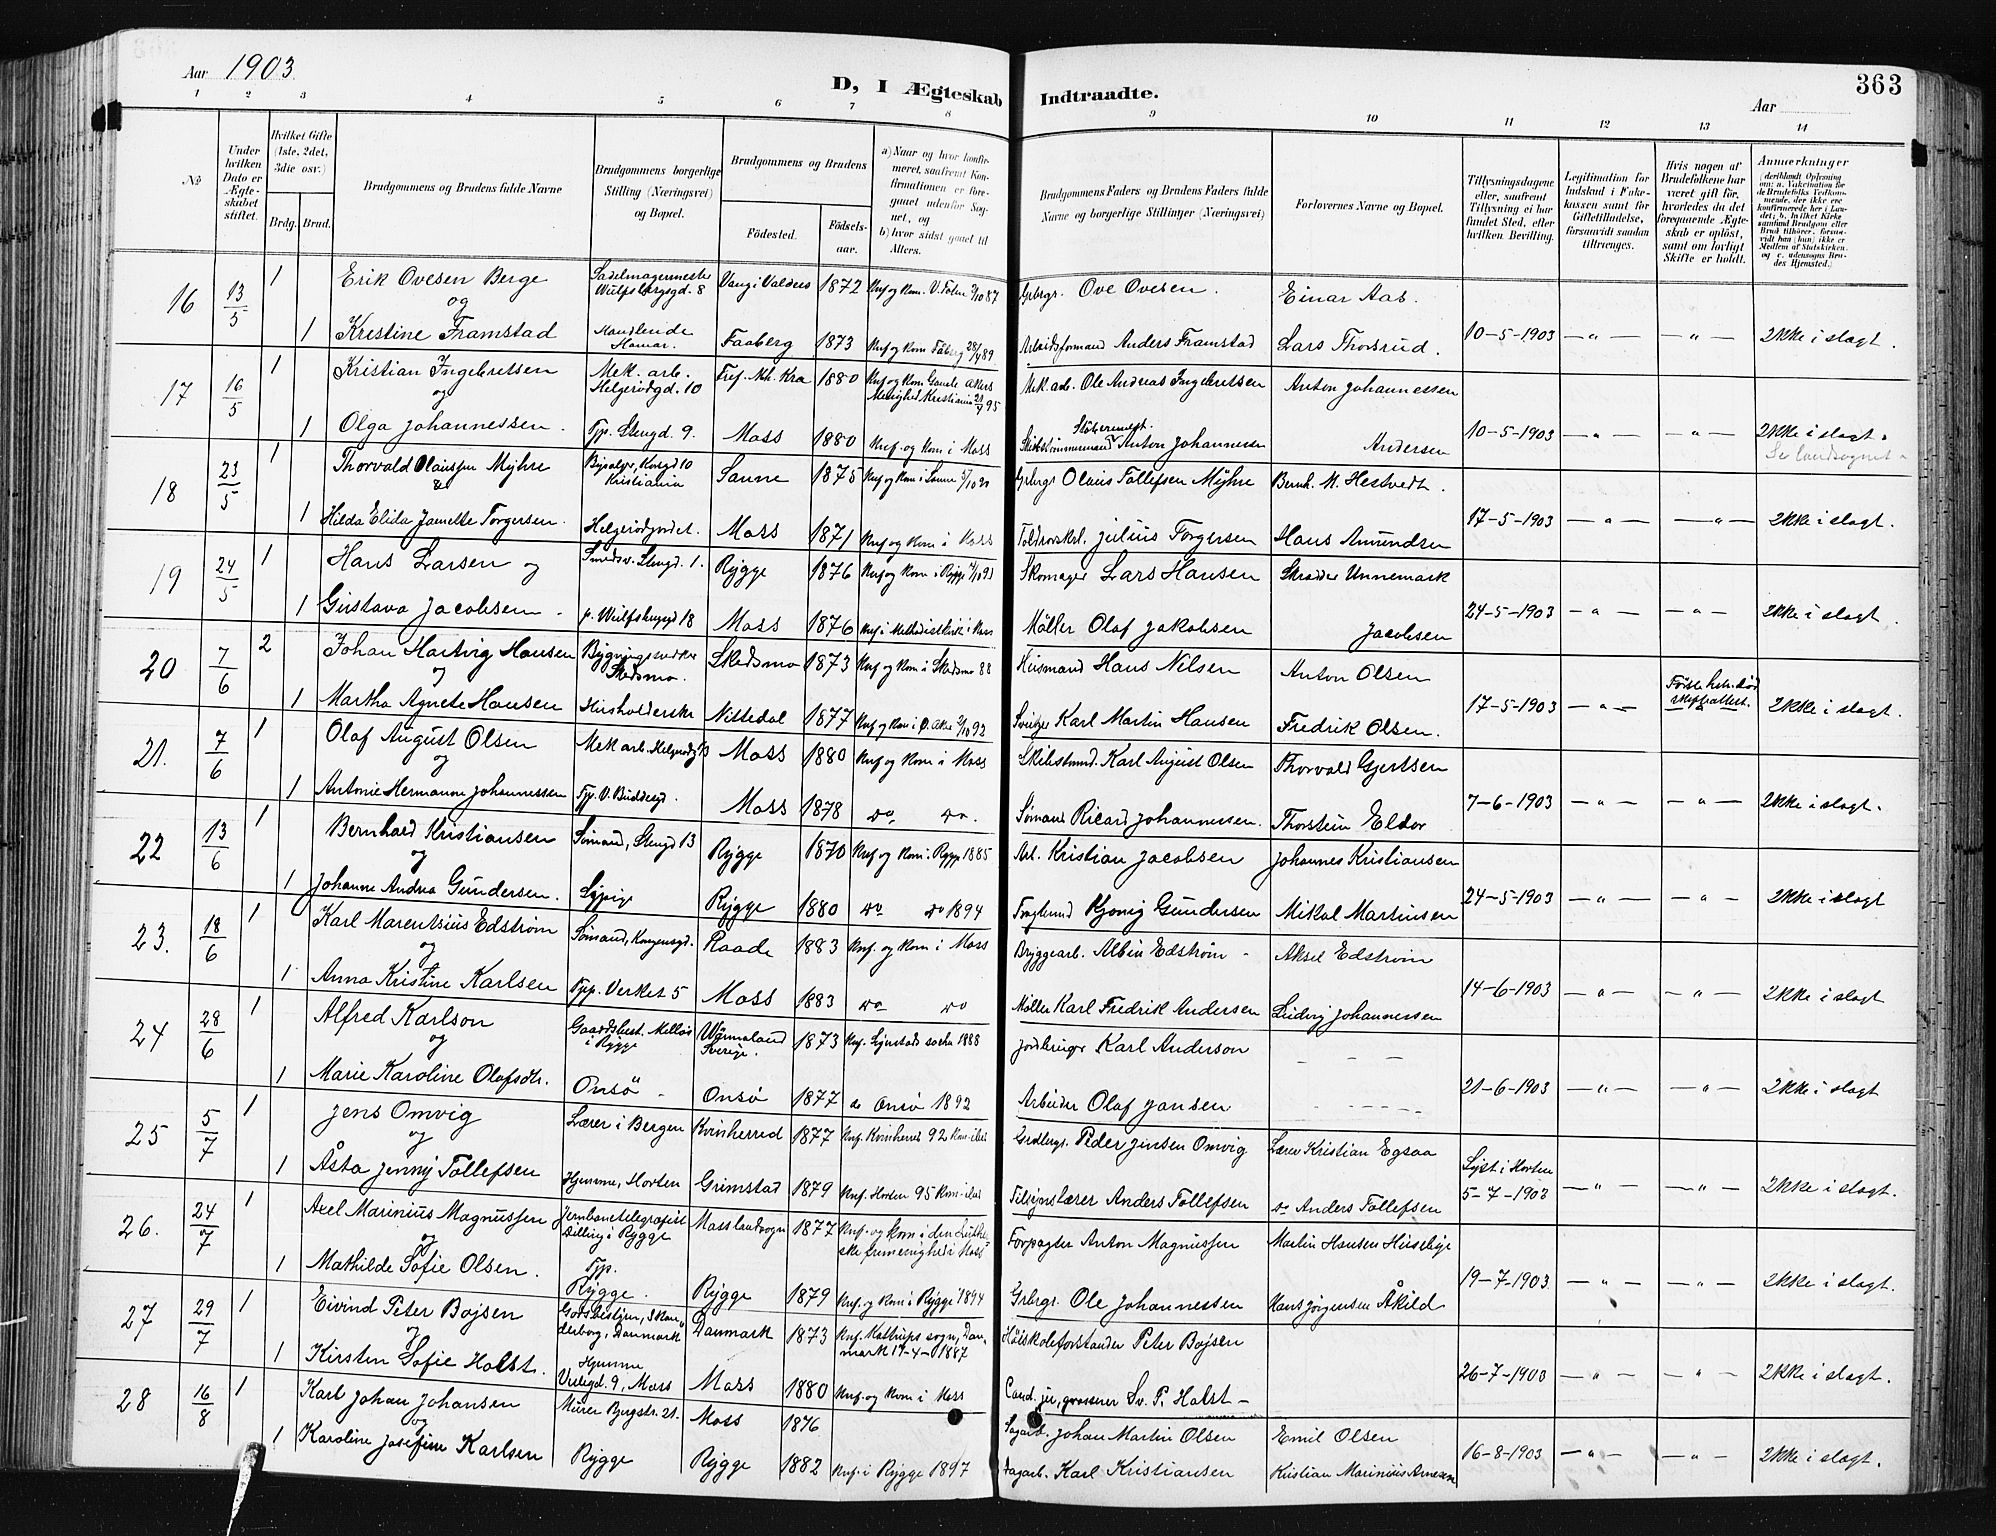 Aar 1903
D, I Ægteskab Indtraadte.
Aar
363
1 2 3 4 5 6 7 8 9 10 11 12 13 14
№
Under hvilken Dato er Ægteskabet stiftet.
Hvilket Gifte (1ste, 2det, 3die osv.)
Brdg. Brud.
Brudgommens og Brudens fulde Navne
Brudgommens borgerlige Stilling (Næringsvei) og Bopæl.
Brudgommens og Brudens
Födested.
Födselsaar.
a) Naar og hvor konfirmeret, saafremt Konfirmationen er foregaaet udenfor Sognet, og
b) hvor sidst gaaet til Alters.
Brudgommens Faders og Brudens Faders fulde Navne og borgerlige Stillinger (Næringsvei)
Forlovernes Navne og Bopæl.
Tillysningsdagene eller, saafremt Tillysning ei har fundet Sted, efter hvilken Bevilling.
Legitimation for Indskud i Enkekassen samt for Giftetilladelse, forsaavidt saadan tiltrænges.
Hvis nogen af Brudefolkene har været gift för, hvorledes da det foregaaende Ægteskab er oplöst, samt om lovligt Skifte er holdt.
Anmærkninger
16 13/5 1 Erik Ovesen Berge Sadelmagermester Wulfsbergsgd. 8 Vang i Valders 1872 Knf og kom. Grbrgr. Ove Ovesen. Einar Aas.
og
1 Kristine Framstad Handlende Hamar. Faaberg 1873 Knf og kom Fåberg 89 Arbeidsformand Anders Framstad Lars Thorsrud. 10-5-1903 — " — — " — Ikke i slagt.
17 16/5 1 Kristian Ingebretsen Mek. arb. Helgerødgd. 10 Tref. Mh. Kra 1880 Knf og kom Gamle Akers Menighed Kristiania 95 Mek. arb. Ole Andreas Ingebretsen Anton Johannessen
og
1 Olga Johannessen. Tjp. Stengd. 9. Moss 1880 Knf. og kom i Moss Skibstömmermand Anton Johannessen Andersen 10-5-1903 — " — — " — Ikke i slagt.
Se landsognet
18 23/5 1 Thorvald Olaussen Myhre Kristiania Sanne 1875 Knf og kom i Sanne Grbrgr Olaus Tollefsen Myhre Bernh. M. Hestvedt.
&
1 Hilda Elida Jamette Torgersen. Helgerödgndet. Moss 1871 Knf og kom i Moss Julius Torgersen Hans Amundsen 17-5-1903 — " — — " — Ikke i slagt.
19 24/5 1 Hans Larsen og Smedsv. Stengd. 1. Rygge 1876 Knf og kom i Rygge Skomager Lars Hansen Skrædder Unnemark
1 Gustava Jacobsen p. Wulfsbergsgd 18 Moss 1876 Knf i Methodistkirk i Moss Möller Olaf Jakobsen Jacobsen 24-5-1903 — " — — " — Ikke i slagt.
20 7/6 2 Johan Hartvig Hansen Skedsmo. Skedsmo 1873 Knf og kom i Skedsmo 88 Husmand Hans Nilsen Anton Olsen
og
1 Martha Agnete Hansen Husholderske Nittedal 1877 Knf og kom i Ø. Aker 92 Karl Martin Hansen Fredrik Olsen. 17-5-1903 — " — Første hstr. død skifteattest. Ikke i slagt.
21. 7/6 1 Olaf August Olsen Mek arb. Moss 1880 Knf og kom i Moss Karl August Olsen Thorvald Gjertsen
og
1 Antonie Hermanne Johannessen Tjp. V. Buddesgd. Moss 1878 do do. Sömand Ricard Johannessen. Thorstein Eldor 7-6-1903 — " — — " — Ikke i slagt.
22 13/6 1 Bernhard Kristiansen Sömand, Stengd 13 Rygge 1870 Knf og kom i Rygge 1885 Arb. Kristian Jacobsen Johannes Kristiansen
og
1 Johanne Andrea Gundersen. Sypige Rygge 1880 do do 1894 Gundersen Mikal Martinsen 24-5-1903 — " — — " — Ikke i slagt
23. 18/6 1 Karl Marentsius Edström Sömand, Kongensgd. Raade 1883 Knf. og kom i Moss Bryggearb. Albin Edström Aksel Edström
og
1 Anna Kristine Karlsen Tjp. Verket 5 Moss 1883 do do Möller Karl Fredrik Andersen Ludvig Johannessen 14-6-1903 — " — — " — Ikke i slagt
24 28/6 1 Alfred Karlson Gaardsbest. Melløs i Rygge Wärmeland Sverige. 1873 Knf. socken 1888 Jordbruger Karl Anderson — — —
og
1 Marie Karoline Olafsdtr. Onsö Onsö 1877 do Onsö 1892 Arbeider Olaf Jansen — — — 21-6-1903 — " — — " — Ikke i slagt
25 5/7 1 Jens Omvig Lærer i Bergen Kvinherred 1877 Knf. Kvinherred 92 Grdbrgr. Peder Jensen Omvig Lærer Kristian Egsaa
og
1 Åsta Jenny Tollefsen Hjemme, Horten Grimstad 1879 Knf. Horten 95 Tilsynslærer Anders Tollefsen do Anders Tollefsen Lyst i Horten 5-7-1903 — " — — " — Ikke i slagt.
26. 24/7 1 Axel Marinius Magnussen Jernbanetelegrafist Dilling i Rygge Moss landsogn 1877 Knf. og kom i den Lutherske frimenighed i Moss Forpagter Anton Magnussen Martin Hansen Huseby
og
1 Mathilde Sofie Olsen. Tjp. Rygge. Rygge 1879 Knf. og kom i Rygge 1894 Grbrgr. Ole Johannessen Hans Jørgensen Åkild 19-7-1903 — " — — " — Ikke i slagt.
27 29/7 1 Eivind Peter Bojsen Godsbestyrer, Skanderborg, Danmark Danmark 1873 Knf. Hattrups sogn, Danmark 17-4-1887 Höiskoleforstander Peter Bojsen
og
1 Kirsten Sofie Holst. Hjemme Værlegd. 9, Moss Moss 1880 Knf. og kom i Moss Cand. jur, grosserer Sv. P. Holst — 26-7-1903 — " — — " — Ikke i slagt.
28 16/8 1 Karl Johan Johansen Murer Bjergstr. 21. Moss 1876 Sagarb. Johan Martin Olsen Emil Olsen
og
1 Karoline Josefine Karlsen Rygge Rygge 1882 Knf. i Rygge 1897 Dagarb. Karl Kristiansen Kristian Marinius Arnesen 16-8-1903 — " — — " — Ikke i slagt.